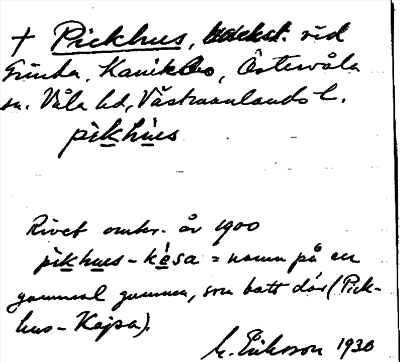 † Pickhus, backst. vid
Grinda, Kanikbo, Östervåla
sn. Våla hd, Västmanlands l.
pìkhùs
Rivet omkr. år 1900
pìkhus-kèsa = namn på en
gammal gumma, som bott där (Pick-
hus-Kajsa).
M. Eriksson 1930